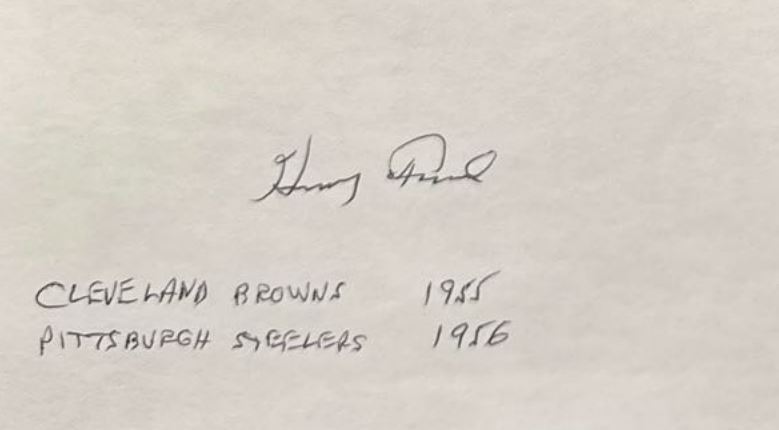 Henry Ford
CLEVELAND BROWNS 1955
PITTSBURGH STEELERS 1956